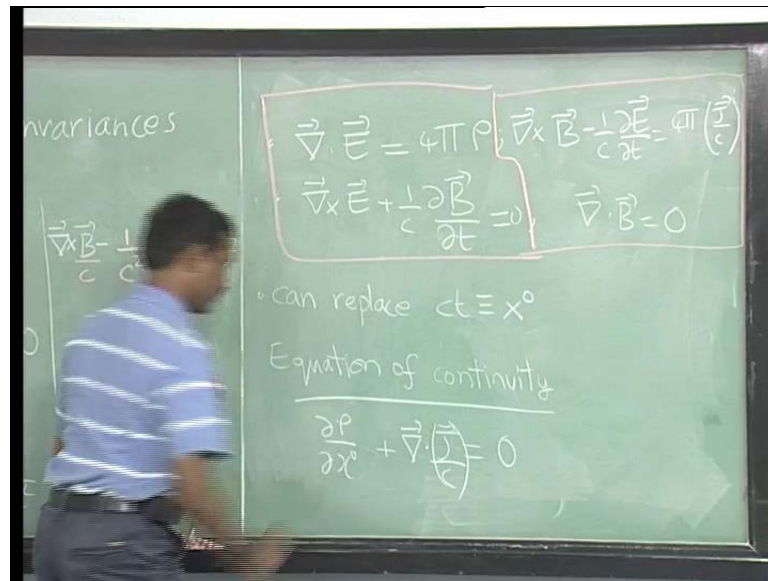 nvariances
∇⃗×B⃗/c − 1/c²
∇⃗·E⃗ = 4πρ ; ∇⃗×B⃗ − 1/c ∂E⃗/∂t = 4π(J⃗/c)
∇⃗×E⃗ + 1/c ∂B⃗/∂t = 0 ∇⃗·B⃗ = 0
· can replace ct ≡ x⁰
Equation of continuity
∂ρ/∂x⁰ + ∇⃗·(J⃗/c) = 0